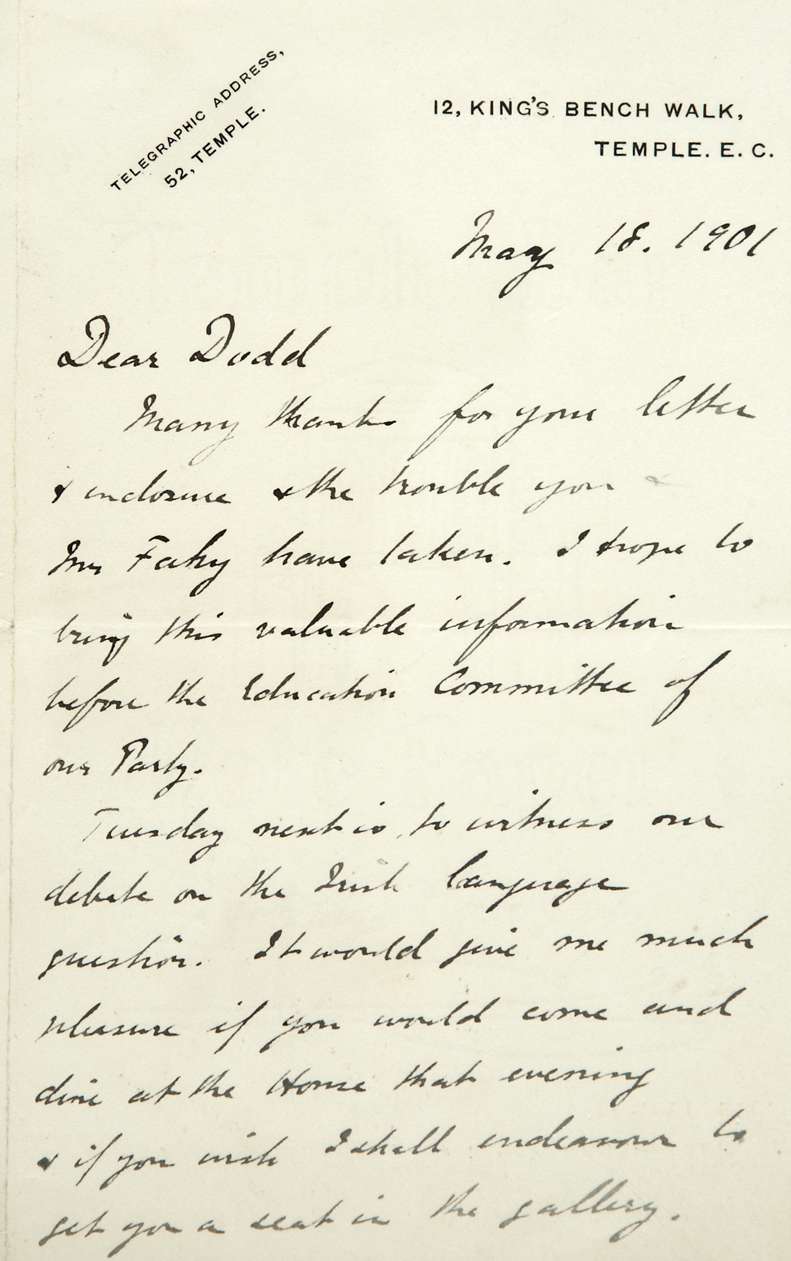 TELEGRAPHIC ADDRESS,
52, TEMPLE.
12, KING'S BENCH WALK,
TEMPLE. E. C.
May 18. 1901
Dear Dodd
Many thanks for your letter
& enclosure & the trouble you &
Mr Fahy have taken. I hope to
bring this valuable information
before the Education Committee of
our Party.
Tuesday next is to witness our
debate on the Irish Language
question. It would give me much
pleasure if you would come and
dine at the House that evening
& if you wish I shall endeavour to
get you a seat in the gallery.